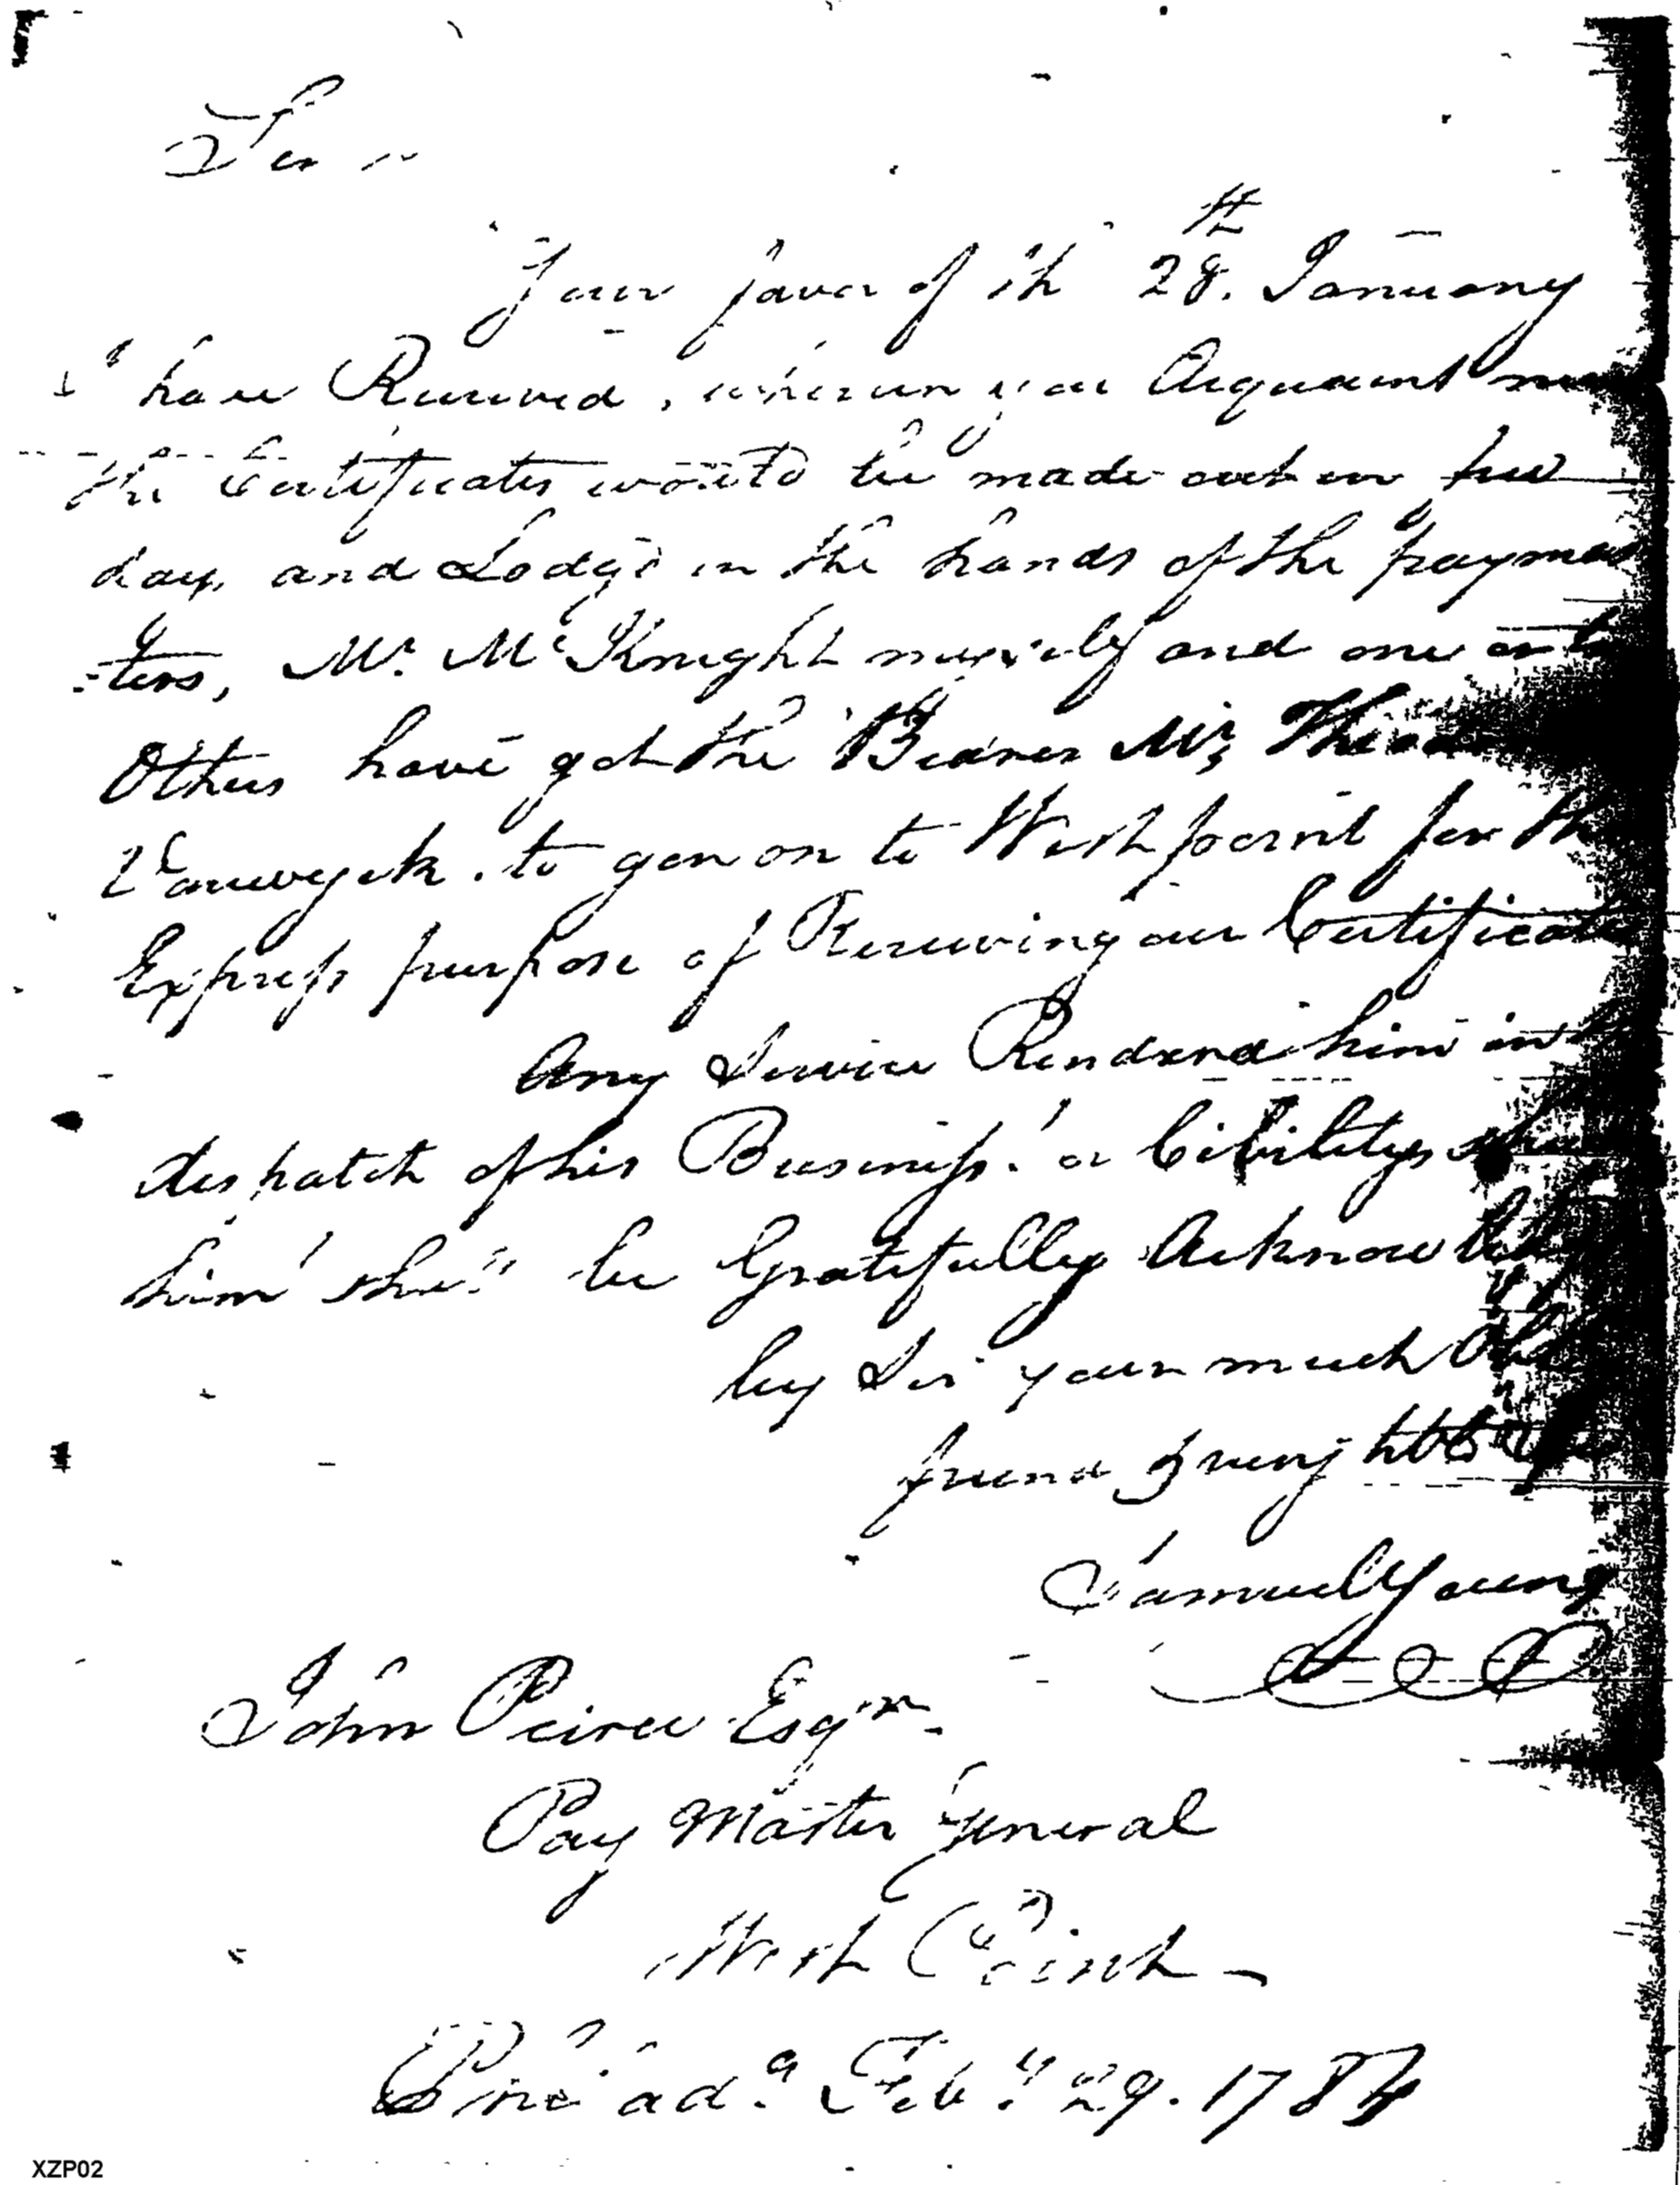 Sir
Your favor of th 28th. January
I have Received, wherein you Acquaint me
the Certificates would be made out in few
days, and Lodg'd in the hands of the paymas
ters, Mr. McKnight myself and one or
Others have got the Bearer Mr,
Vanwyck. to gon on to West point for th
Express purpose of Receiving our Certificate
Any Service Renderd him in
despatch of his Business. or Civilitys
him shall be Gratefully Acknow
by Sir your much
friend & very hble
Samuel Young
John Peirce Esqr.
Pay Master General
West Point
Feby. 29. 1784
XZP02